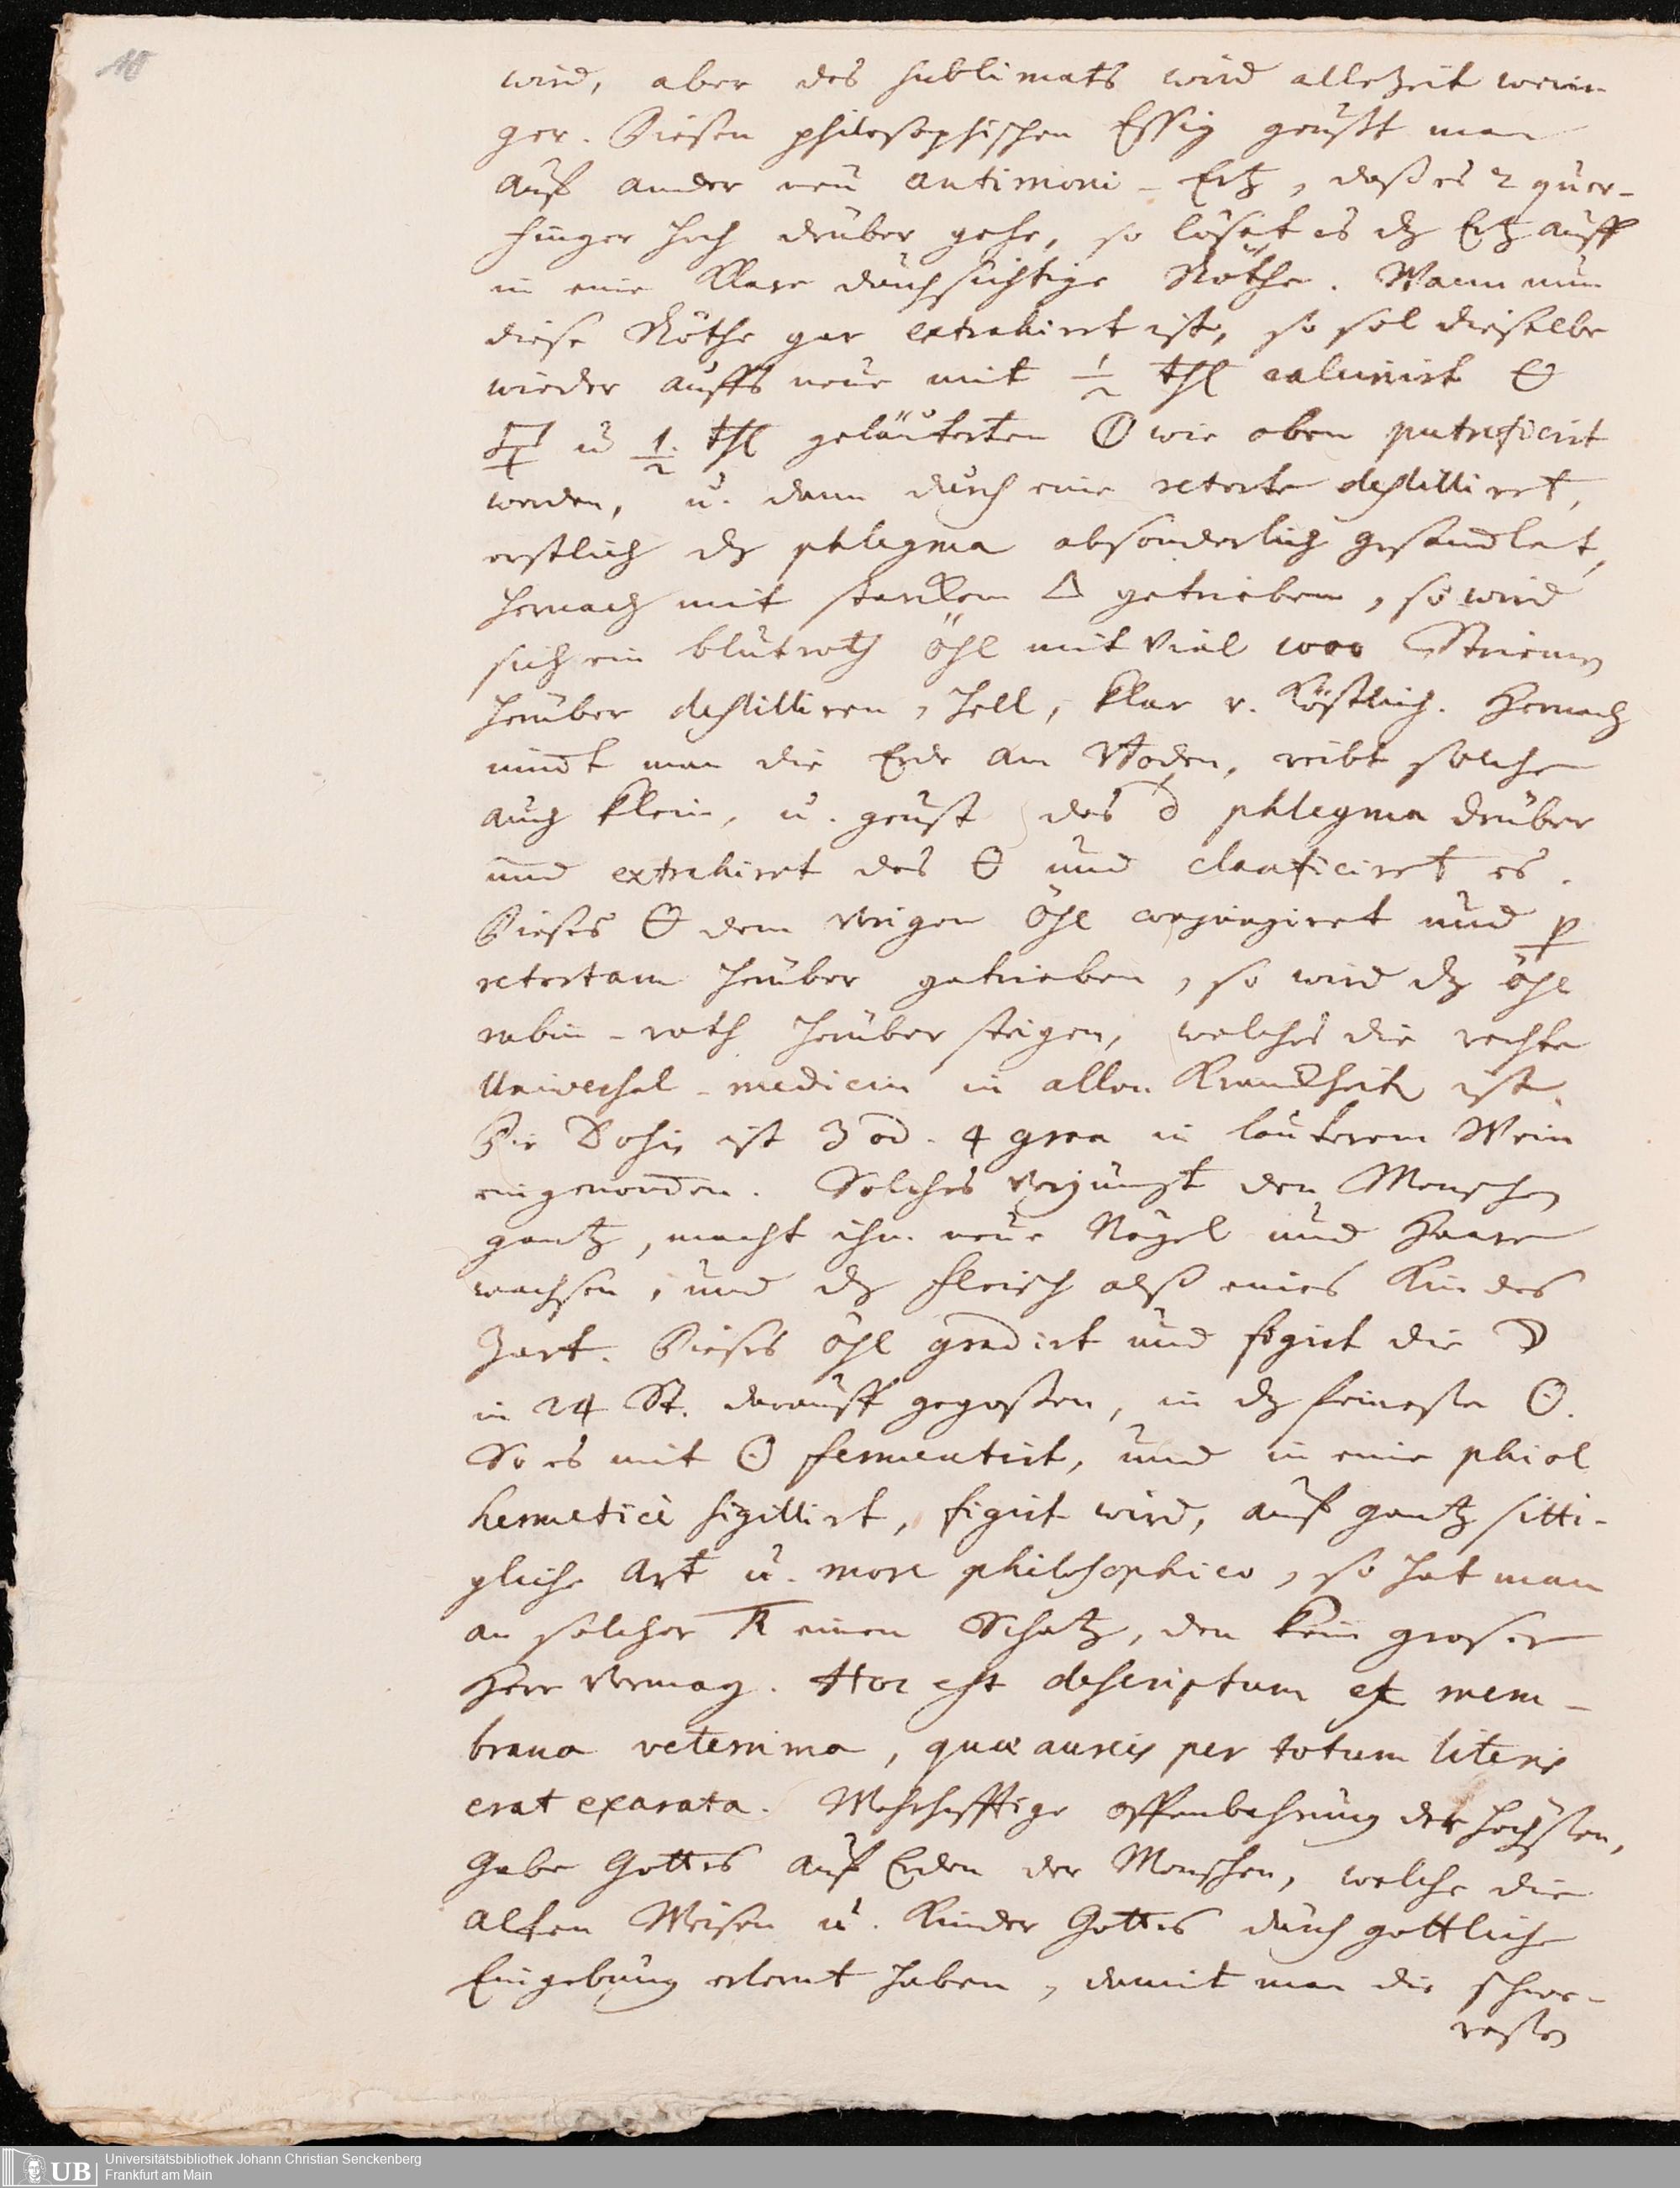 10
wird, aber des sublimats wird allezeit wenin-
ger. Diesen philosophischen Essig geußt man
auf ander neu antimoni-Ertz, daß es 2 quer-
finger hoch drüber gehe, so löset es dz Ertz auff
in eine klare durchsichtige Röthe. Wann nun
diese Röthe gar extrahirt ist, so sol dieselbe
wieder auffs neue mit 1/2 thl calcinirt 🜔
u 1/2 thl geläuterten 🜕 wie oben putreficirt
werden, u. dann durch eine retorte destilliret,
erstlich dz phlegma absonderlich gesamlet,
hernach mit starckem 🜂 getrieben, so wird
sich ein blutroth öhl mit viel 1000 Striemen
herüber destilliren, hell, klar v. köstlich. Hernach
nimt man die Erde am Boden, reibt solche
auch klein, u. geust des phlegma drüber
und extrahirt des 🜔 und clarificiret es.
Dieses 🜔 dem vrigen öhl conjungiret und p
retortam herüber getrieben, so wird dz öhl
rubin-roth herüber steigen, welches die rechte
Universal-medicin in allen Kranckheiten ist.
Die Dosis ist 3 od. 4 gran in lauterem Wein
eingenommen. Solches verjüngt den Menschen
gantz, macht ihm neue Nägel und Haare
wachsen, und dz fleisch alß eines Kindes
Zart. Dieses öhl gradirt und figirt die ☽
in 24 St. darauff gegoßen, in dz feineste ☉.
So es mit ☉ fermentirt, und in eine phiol
hermeticè sigillirt, figirt wird, auf gantz sitti-
gliche Art u. more philosophico, so hat man
an solcher einen Schatz, den kein groser
Herr vermag. Hoc est descriptum ex mem-
brana veterrima, quæ aureis per totum literis
erat exarata. Wahrhafftige offenbahrung der höchsten,
Gabe Gottes auf Erden der Menschen, welche die
alten Weisen u. Kinder Gottes durch gottliche
Eingebung erlernt haben, damit man die schwe-
resten
Universitätsbibliothek Johann Christian Senckenberg
Frankfurt am Main
UB